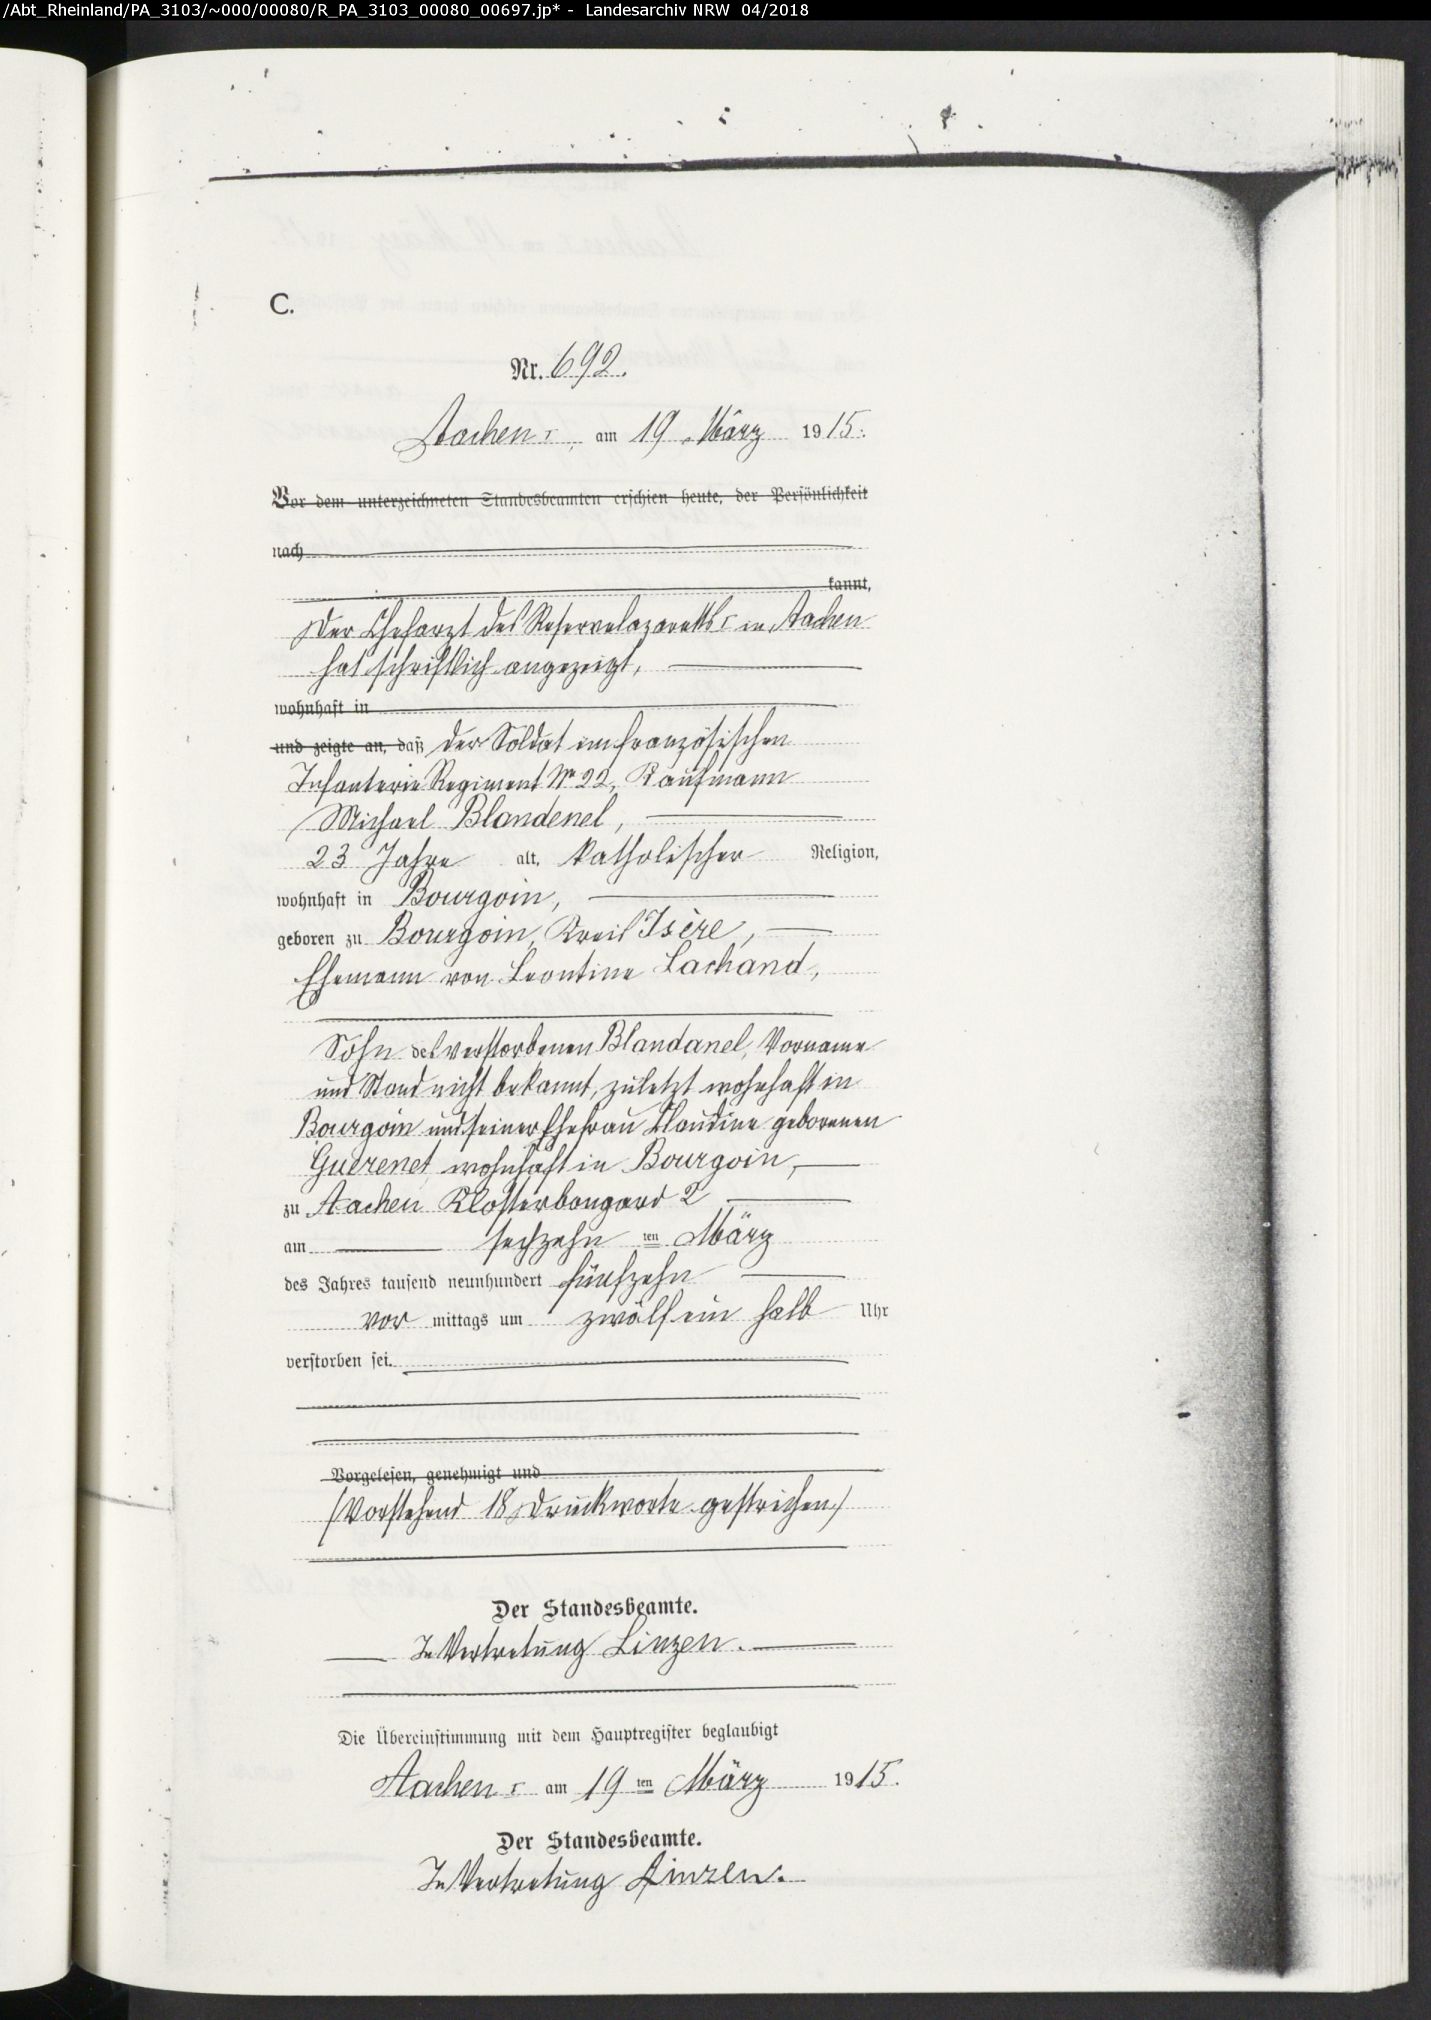 /Abt_Rheinland/PA_3103/~000/00080/R_PA_3103_00080_00697.jp* - Landesarchiv NRW 04/2018
C.
Nr. 692.
Aachen I, am 19. März 1915.
Vor dem unterzeichneten Standesbeamten erschien heute, der Persönlichkeit
nach
kannt,
Der Chefarzt des Reservelazaretts I in Aachen
hat schriftlich angezeigt,
wohnhaft in
und zeigte an, daß der Soldat im französischen
Infanterie Regiment No 22, Kaufmann
Michael Blandenel,
23 Jahre alt, katholischer Religion,
wohnhaft in Bourgoin,
geboren zu Bourgoin, Kreis Isère,
Ehemann von Leontine Lachand,
Sohn des verstorbenen Blandanel, Vorname
und Stand nicht bekannt, zuletzt wohnhaft in
Bourgoin und seiner Ehefrau Claudine geborenen
Guerenet, wohnhaft in Bourgoin,
zu Aachen Klosterbongard 2
am sechzehn ten März
des Jahres tausend neunhundert fünfzehn
vor mittags um zwölf ein halb Uhr
verstorben sei.
Vorgelesen, genehmigt und
(Vorstehend 18 Druckworte gestrichen)
Der Standesbeamte.
In Vertretung Linzen.
Die Übereinstimmung mit dem Hauptregister beglaubigt
Aachen I am 19 ten März 1915.
Der Standesbeamte.
In Vertretung Linzen.